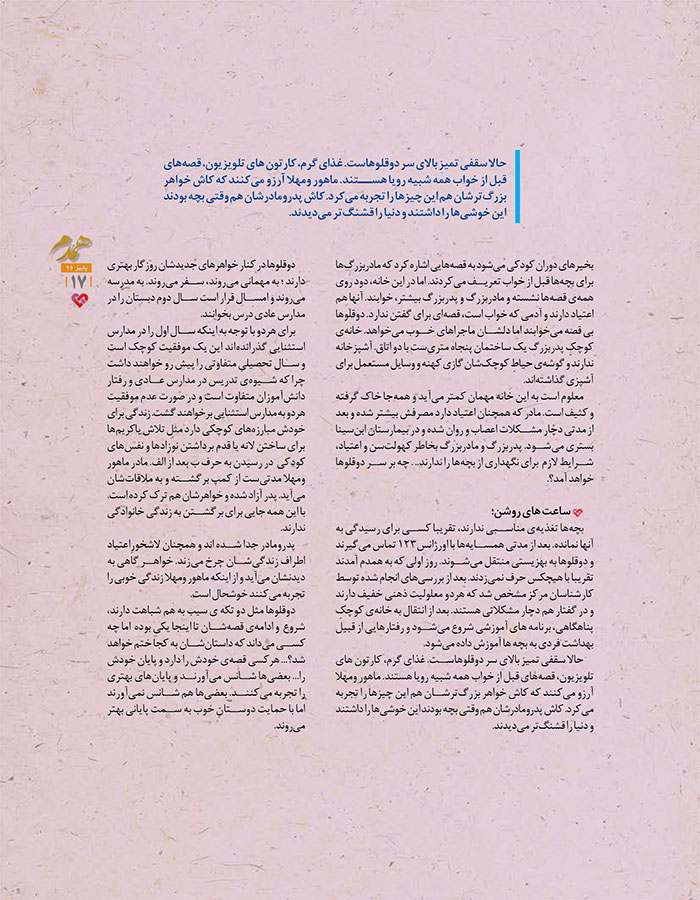 حالا سقفی تمیز بالای سر دوقلوهاست. غذای گرم، کارتون های تلویزیون، قصه‌های
قبل از خواب همه شبیه رویا هستند. ماهور ومهلا آرزو می‌کنند که کاش خواهر
بزرگ‌ترشان هم این چیزها را تجربه می‌کرد. کاش پدرومادرشان هم وقتی بچه بودند
این خوشی‌ها را داشتند و دنیا را قشنگ‌تر می‌دیدند.
همدم
پاییز ۹۶
۱۷
بخیرهای دوران کودکی می‌شود به قصه‌هایی اشاره کرد که مادربزرگ‌ها
برای بچه‌ها قبل از خواب تعریف می‌کردند. اما در این خانه، دود روی
همه‌ی قصه‌ها نشسته و مادربزرگ و پدربزرگ بیشتر، خوابند. آنها هم
اعتیاد دارند و آدمی که خواب است، قصه‌ای برای گفتن ندارد. دوقلوها
بی قصه می‌خوابند اما دلشان ماجراهای خوب می‌خواهد. خانه‌ی
کوچک پدربزرگ یک ساختمان پنجاه متری‌ست با دو اتاق. آشپزخانه
ندارند و گوشه‌ی حیاط کوچک‌شان گازی کهنه و وسایل مستعمل برای
آشپزی گذاشته‌اند.
معلوم است به این خانه مهمان کمتر می‌آید و همه‌جا خاک گرفته
و کثیف است. مادر که همچنان اعتیاد دارد مصرفش بیشتر شده و بعد
از مدتی دچار مشکلات اعصاب و روان شده و در بیمارستان ابن‌سینا
بستری می‌شود. پدربزرگ و مادربزرگ بخاطر کهولت‌سن و اعتیاد،
شرایط لازم برای نگهداری از بچه‌ها را ندارند... چه بر سر دوقلوها
خواهد آمد؟.
ساعت های روشن؛
بچه‌ها تغذیه‌ی مناسبی ندارند، تقریبا کسی برای رسیدگی به
آنها نمانده. بعد از مدتی همسایه‌ها با اورژانس ۱۲۳ تماس می‌گیرند
و دوقلوها به بهزیستی منتقل می‌شوند. روز اولی که به همدم آمدند
تقریبا با هیچکس حرف نمی‌زدند. بعد از بررسی‌های انجام شده توسط
کارشناسان مرکز مشخص شد که هر دو معلولیت ذهنی خفیف دارند
و در گفتار هم دچار مشکلاتی هستند. بعد از انتقال به خانه‌ی کوچک
پناهگاهی، برنامه های آموزشی شروع می‌شود و رفتارهایی از قبیل
بهداشت فردی به بچه ها آموزش داده می‌شود.
حالا سقفی تمیز بالای سر دوقلوهاست. غذای گرم، کارتون های
تلویزیون، قصه‌های قبل از خواب همه شبیه رویا هستند. ماهور ومهلا
آرزو می‌کنند که کاش خواهر بزرگ‌ترشان هم این چیزها را تجربه
می‌کرد. کاش پدرومادرشان هم وقتی بچه بودند این خوشی‌ها را داشتند
و دنیا را قشنگ‌تر می‌دیدند.
دوقلوها در کنار خواهرهای جدیدشان روزگار بهتری
دارند؛ به مهمانی می‌روند، سفر می‌روند. به مدرسه
می‌روند و امسال قرار است سال دوم دبستان را در
مدارس عادی درس بخوانند.
برای هر دو با توجه به اینکه سال اول را در مدارس
استثنایی گذرانده‌اند این یک موفقیت کوچک است
و سال تحصیلی متفاوتی را پیش رو خواهند داشت
چرا که شیوه‌ی تدریس در مدارس عادی و رفتار
دانش‌آموزان متفاوت است و در صورت عدم موفقیت
هر دو به مدارس استثنایی برخواهند گشت. زندگی برای
خودش مبارزه‌های کوچکی دارد مثل تلاش یاکریم‌ها
برای ساختن لانه یا قدم برداشتن نوزادها و نفس‌های
کودکی در رسیدن به حرف ب بعد از الف. مادر ماهور
ومهلا مدتی‌ست از کمپ برگشته و به ملاقات‌شان
می‌آید. پدر آزاد شده و خواهرشان هم ترک کرده است.
با این همه جایی برای برگشتن به زندگی خانوادگی
ندارند.
پدرومادر جدا شده اند و همچنان لاشخور اعتیاد
اطراف زندگی‌شان چرخ می‌زند. خواهر گاهی به
دیدنشان می‌آید و از اینکه ماهور ومهلا زندگی خوبی را
تجربه می‌کنند خوشحال است.
دوقلوها مثل دو تکه ی سیب به هم شباهت دارند،
شروع و ادامه‌ی قصه‌شان تا اینجا یکی بوده اما چه
کسی می‌داند که داستان‌شان به کجا ختم خواهد
شد؟... هر کسی قصه‌ی خودش را دارد و پایان خودش
را... بعضی‌ها شانس می‌آورند و پایان‌های بهتری
را تجربه می‌کنند. بعضی‌ها هم شانس نمی‌آورند
اما با حمایت دوستان خوب به سمت پایانی بهتر
می‌روند.